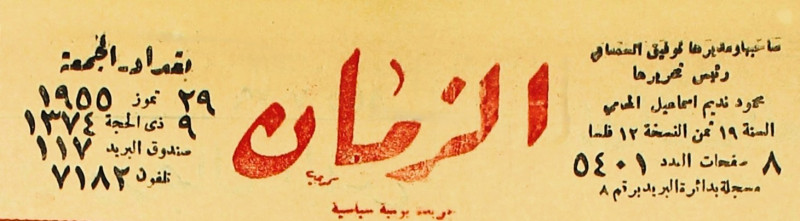 صاحبها ومديرها توفيق السمعاني
رئيس تحريرها
محمود نديم اسماعيل المحامي
السنة ١٩ ثمن النسخة ١٢ فلسا
٨ صفحات العدد ٥٤٠١
مسجلة بدائرة البريد برقم ٨
الزمان
جريدة يومية سياسية
بغداد الجمعة
٢٩ تموز ١٩٥٥
٩ ذى الحجة ١٣٧٤
صندوق البريد ١١٧
تلفون ٧١٨٢